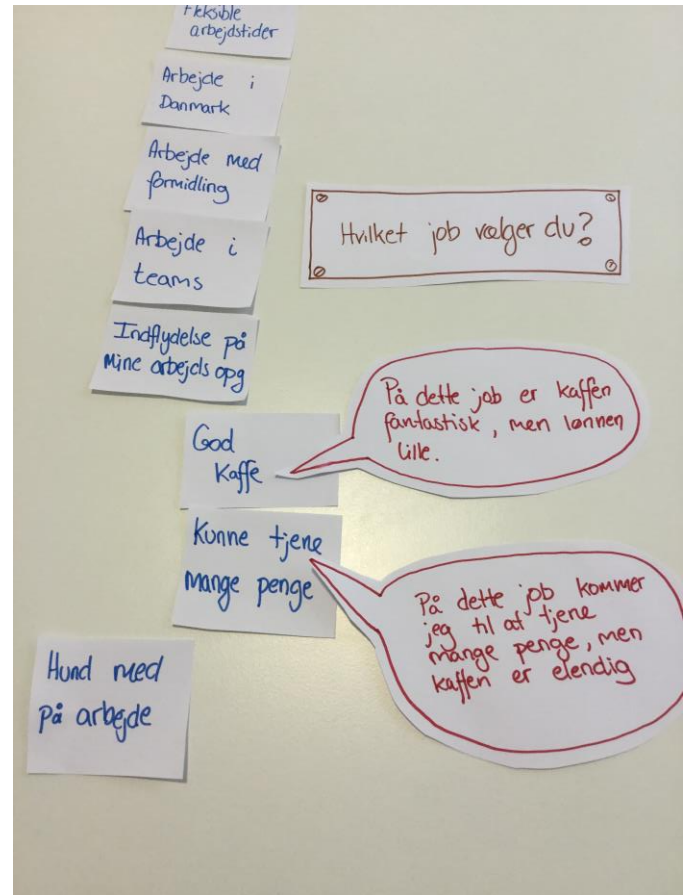 Fleksible
arbejdstider
Arbejde i
Danmark
Arbejde med
formidling
Arbejde i
teams
Hvilket job vælger du?
Indflydelse på
Mine arbejds opg
God
Kaffe
På dette job er kaffen
fantastisk, men lønnen
lille.
Kunne tjene
mange penge
På dette job kommer
jeg til at tjene
mange penge, men
kaffen er elendig
Hund med
på arbejde